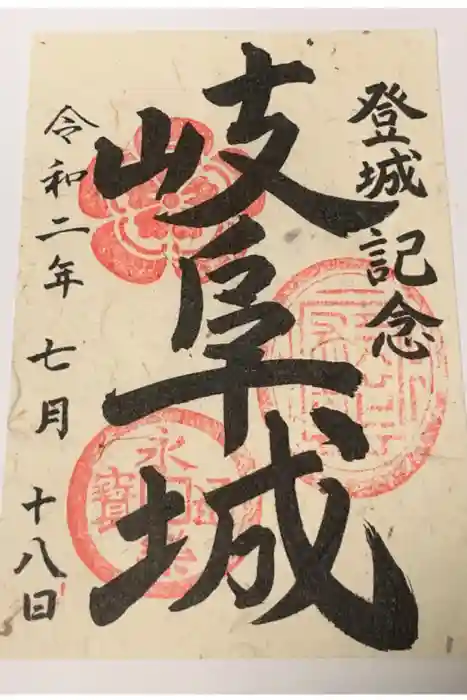 登城記念
岐阜城
令和二年 七月 十八日
永
寳